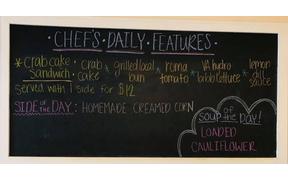 · CHEF'S · DAILY · FEATURES ·
* crab cake sandwich · crab cake * grilled local bun * roma tomato * VA hydro bibb lettuce * lemon dill sauce
served with 1 side for $12
SIDE OF THE DAY: HOMEMADE CREAMED CORN
soup of the DAY!
LOADED
CAULIFLOWER